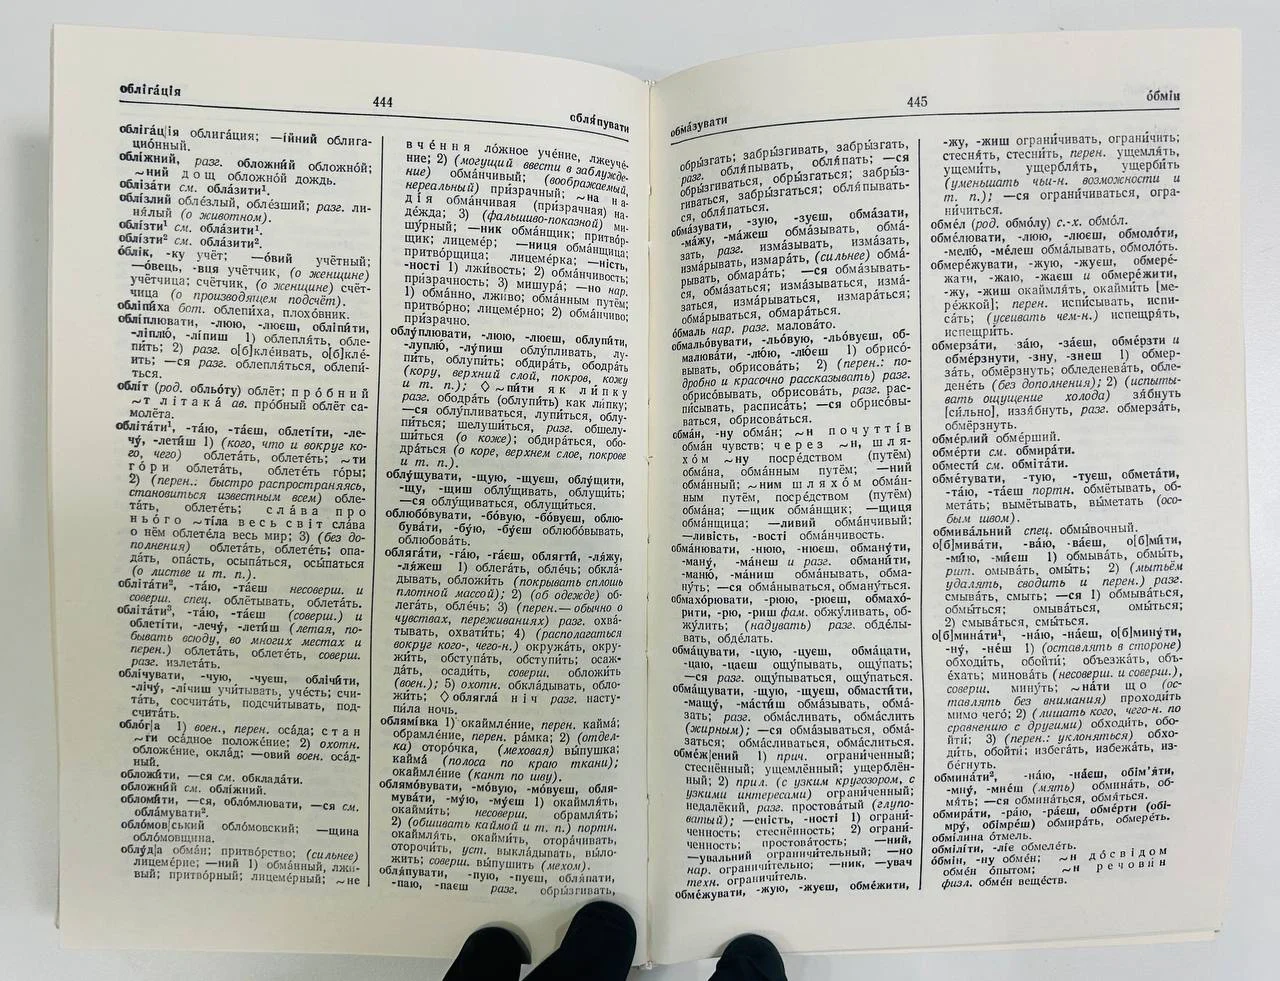 облiга́цiя
444
обля́пувати
облiга́ц|iя облига́ция; —íйний облига-
цио́нный.
облі́жний, разг. обложни́й обложно́й;
~ний дощ обложно́й дождь.
облі́зати см. обла́зити¹.
облі́злий обле́злый, обле́зший; разг. ли-
ня́лый (о животном).
облі́зти¹ см. обла́зити¹.
облі́зти² см. обла́зити².
о́блік, -ку учёт; —о́вий учётный;
—о́вець, -вця учётчик, (о женщине)
учётчица; счётчик, (о женщине) счёт-
чица (о производящем подсчёт).
облі́пиха бот. облепи́ха, плохо́вник.
облі́плювати, -люю, -люєш, обліпи́ти,
-ліплю́, -лі́пиш 1) облепля́ть, обле-
пи́ть; 2) разг. о[б]кле́ивать, о[б]кле́-
ить; —ся разг. облепля́ться, облепи́-
ться.
облі́т (род. обльо́ту) облёт; про́бний
~т літака́ ав. про́бный облёт са-
молёта.
обліта́ти¹, -та́ю, -та́єш, облеті́ти, -ле-
чу́, -лети́ш 1) (кого, что и вокруг ко-
го, чего) облета́ть, облете́ть; ~ти
го́ри облета́ть, облете́ть го́ры;
2) (перен.: быстро распространяясь,
становиться известным всем) обле-
та́ть, облете́ть; сла́ва про
ньо́го ~ті́ла весь світ сла́ва
о нём облете́ла весь мир; 3) (без до-
полнения) облета́ть, облете́ть; опа-
да́ть, опа́сть, осыпа́ться, осы́паться
(о листве и т. п.).
обліта́ти², -та́ю, -та́єш несоверш. и
соверш. спец. облётывать, облета́ть.
обліта́ти³, -та́ю, -та́єш (соверш.) и
облеті́ти, -лечу́, -лети́ш (летая, по-
бывать всюду, во многих местах и
перен.) облета́ть, облете́ть, соверш.
разг. излета́ть.
облі́чувати, -чую, -чуєш, облічи́ти,
-лічу́, -лі́чиш учи́тывать, уче́сть; счи-
та́ть, сосчита́ть, подсчи́тывать, под-
счита́ть.
обло́г|а 1) воен., перен. оса́да; стан
~ги оса́дное положе́ние; 2) охотн.
обложе́ние, окла́д; —овий воен. оса́д-
ный.
обложи́ти, —ся см. обклада́ти.
обложни́й см. облі́жний.
облома́ти, —ся, обло́млювати, —ся см.
обла́мувати².
обло́мов|ський обло́мовский; —щина
обло́мовщина.
облу́д|а обма́н; притво́рство; (сильнее)
лицеме́рие; —ний 1) обма́нный, лжи́-
вый; притво́рный, лицеме́рный; ~не
вчення ло́жное уче́ние, лжеуче́-
ние; 2) (могущий ввести в заблужде-
ние) обма́нчивый; (воображаемый,
нереальный) при́зрачный; ~на на-
ді́я обма́нчивая (при́зрачная) на-
де́жда; 3) (фальшиво-показной) ми-
шу́рный; —ник обма́нщик; притво́р-
щик; лицеме́р; —ниця обма́нщица;
притво́рщица; лицеме́рка; —ність,
-ності 1) лжи́вость; 2) обма́нчивость;
при́зрачность; 3) мишура́; —но нар.
1) обма́нно, лжи́во; обма́нным путём;
притво́рно; лицеме́рно; 2) обма́нчиво;
при́зрачно.
облу́плювати, -люю, -люєш, облупи́ти,
-луплю́, -лу́пиш облу́пливать, лу-
пи́ть, облупи́ть; обдира́ть, ободра́ть
(кору, верхний слой, покров, кожу
и т. п.); ◊ ~пи́ти як ли́пку
разг. ободра́ть (облупи́ть) как ли́пку;
—ся облу́пливаться, лупи́ться, облу-
пи́ться; шелуши́ться, разг. обшелу-
ши́ться (о коже); обдира́ться, обо-
дра́ться (о коре, верхнем слое, покрове
и т. п.).
облу́щувати, -щую, -щуєш, облу́щити,
-щу, -щиш облу́щивать, облущи́ть;
—ся облу́щиваться, облущи́ться.
облюбо́вувати, -бо́вую, -бо́вуєш, облю-
бува́ти, -бу́ю, -бу́єш облюбо́вывать,
облюбова́ть.
обляга́ти, -га́ю, -га́єш, облягти́, -ля́жу,
-ля́жеш 1) облега́ть, обле́чь; обкла́-
дывать, обложи́ть (покрывать сплошь
плотной массой); 2) (об одежде) об-
лега́ть, обле́чь; 3) (перен.—обычно о
чувствах, переживаниях) разг. охва́-
тывать, охвати́ть; 4) (располагаться
вокруг кого-, чего-н.) окружа́ть, окру-
жи́ть, обступа́ть, обступи́ть; осаж-
да́ть, осади́ть, соверш. обложи́ть
(воен.); 5) охотн. обкла́дывать, обло-
жи́ть; ◊ облягла́ ніч разг. насту-
пи́ла ночь.
облямі́вка 1) окаймле́ние, перен. кайма́;
обрамле́ние, перен. ра́мка; 2) (отдел-
ка) оторо́чка, (меховая) вы́пушка;
кайма́ (полоса по краю ткани);
окаймле́ние (кант по шву).
облямо́вувати, -мо́вую, -мо́вуєш, обля-
мува́ти, -му́ю, -му́єш 1) окаймля́ть,
окайми́ть; несоверш. обрамля́ть;
2) (обшивать каймой и т. п.) портн.
окаймля́ть, окайми́ть, отора́чивать,
оторочи́ть, уст. выкла́дывать, вы́ло-
жить; соверш. вы́пушить (мехом).
обля́пувати, -пую, -пуєш, обля́пати,
-паю, -паєш разг. обры́згивать,
обма́зувати
445
о́бмін
обры́згать; забры́згивать, забры́згать,
разг. обля́пывать, обля́пать; —ся
обры́згиваться, обры́згаться; забры́з-
гиваться, забры́згаться; обля́пывать-
ся, обля́паться.
обма́зувати, -зую, -зуєш, обма́зати,
-ма́жу, -ма́жеш обма́зывать, обма́-
зать, разг. изма́зывать, изма́зать,
изма́рывать, измара́ть, (сильнее) обма́-
рывать, обмара́ть; —ся обма́зывать-
ся, обма́заться; изма́зываться, изма́-
заться, изма́рываться, измара́ться;
обма́рываться, обмара́ться.
о́бмаль нар. разг. малова́то.
обмальо́вувати, -льо́вую, -льо́вуєш, об-
малюва́ти, -лю́ю, -лю́єш 1) обрисо́-
вывать, обрисова́ть; 2) (перен.: по-
дробно и красочно рассказывать) разг.
обрисо́вывать, обрисова́ть, разг. рас-
пи́сывать, расписа́ть; —ся обрисо́вы-
ваться, обрисова́ться.
обма́н, -ну обма́н; ~н почуттів
обма́н чувств; через ~н, шля-
хо́м ~ну посре́дством (путём)
обма́на, обма́нным путём; —ний
обма́нный; ~ним шляхо́м обма́н-
ным путём, посре́дством (путём)
обма́на; —щик обма́нщик; —щиця
обма́нщица; —ливий обма́нчивый;
—ливість, -вості обма́нчивость.
обма́нювати, -нюю, -нюєш, обману́ти,
-ману́, -ма́неш и разг. обмани́ти,
-маню́, -ма́ниш обма́нывать, обма-
ну́ть; —ся обма́нываться, обману́ться.
обмахо́рювати, -рюю, -рюєш, обмахо́-
рити, -рю, -риш фам. обжу́ливать, об-
жу́лить; (надувать) разг. обде́лы-
вать, обде́лать.
обма́цувати, -цую, -цуєш, обма́цати,
-цаю, -цаєш ощу́пывать, ощу́пать;
—ся разг. ощу́пываться, ощу́паться.
обма́щувати, -щую, -щуєш, обмасти́ти,
-мащу́, -ма́стиш обма́зывать, обма́-
зать; разг. обма́сливать, обма́слить
(жирным); —ся обма́зываться, обма́-
заться; обма́сливаться, обма́слиться.
обме́ж|ений 1) прич. ограни́ченный;
стеснённый; ущемлённый; ущерблён-
ный; 2) прил. (с узким кругозором, с
узкими интересами) ограни́ченный;
недалёкий, разг. простова́тый (глупо-
ватый); —еність, -ності 1) ограни́-
ченность; стеснённость; 2) ограни́-
ченность; простова́тость; —ний,
—увальний ограничи́тельный; —но
нар. ограничи́тельно; —ник, —увач
техн. ограничи́тель.
обме́жувати, -жую, -жуєш, обме́жити,
-жу, -жиш ограни́чивать, ограни́чить;
стесня́ть, стесни́ть, перен. ущемля́ть,
ущеми́ть, ущербля́ть, ущерби́ть
(уменьшать чьи-н. возможности и
т. п.); —ся ограни́чиваться, огра-
ни́читься.
обме́л (род. обмо́лу) с.-х. обмо́л.
обме́лювати, -люю, -люєш, обмоло́ти,
-мелю́, -ме́леш обма́лывать, обмоло́ть.
обмере́жувати, -жую, -жуєш, обмере́-
жати, -жаю, -жаєш и обмере́жити,
-жу, -жиш окаймля́ть, окайми́ть [ме-
ре́жкой]; перен. испи́сывать, испи-
са́ть; (усеивать чем-н.) испещря́ть,
испещри́ть.
обмерза́ти, за́ю, -за́єш, обме́рзти и
обме́рзнути, -зну, -знеш 1) обмер-
за́ть, обмёрзнуть; обледенева́ть, обле-
дене́ть (без дополнения); 2) (испыты-
вать ощущение холода) зя́бнуть
[си́льно], иззя́бнуть, разг. обмерза́ть,
обмёрзнуть.
обме́рлий обме́рший.
обме́рти см. обмира́ти.
обмести́ см. обміта́ти.
обме́тувати, -тую, -туєш, обмета́ти,
-та́ю, -та́єш портн. обмётывать, об-
мета́ть; вымётывать, вы́метать (осо-
бым швом).
обмива́льний спец. обмы́вочный.
о[б]мива́ти, -ва́ю, -ва́єш, о[б]ми́ти,
-ми́ю, -ми́єш 1) обмыва́ть, обмы́ть,
рит. омыва́ть, омы́ть; 2) (мытьём
удалять, сводить и перен.) разг.
смыва́ть, смыть; —ся 1) обмыва́ться,
обмы́ться; омыва́ться, омы́ться;
2) смыва́ться, смы́ться.
о[б]мина́ти¹, -на́ю, -на́єш, о[б]мину́ти,
-ну́, -не́ш 1) (оставлять в стороне)
обходи́ть, обойти́; объезжа́ть, объ-
е́хать; минова́ть (несоверш. и соверш.),
соверш. мину́ть; ~на́ти що (ос-
тавлять без внимания) проходи́ть
ми́мо чего́; 2) (лишать кого, чего-н. по
сравнению с другими) обходи́ть, обо-
йти́; 3) (перен.: уклоняться) обхо-
ди́ть, обойти́; избега́ть, избежа́ть, из-
бе́гнуть.
обмина́ти², -на́ю, -на́єш, обім'я́ти,
-мну́, -мне́ш (мять) обмина́ть, об-
мя́ть; —ся обмина́ться, обмя́ться.
обмира́ти, -ра́ю, -ра́єш, обме́рти (обі-
мру́, обімре́ш) обмира́ть, обмере́ть.
обмі́лина о́тмель.
обмілі́ти, -лі́є обмеле́ть.
о́бмін, -ну обме́н; ~н до́свідом
обме́н о́пытом; ~н речови́н
физл. обме́н веще́ств.